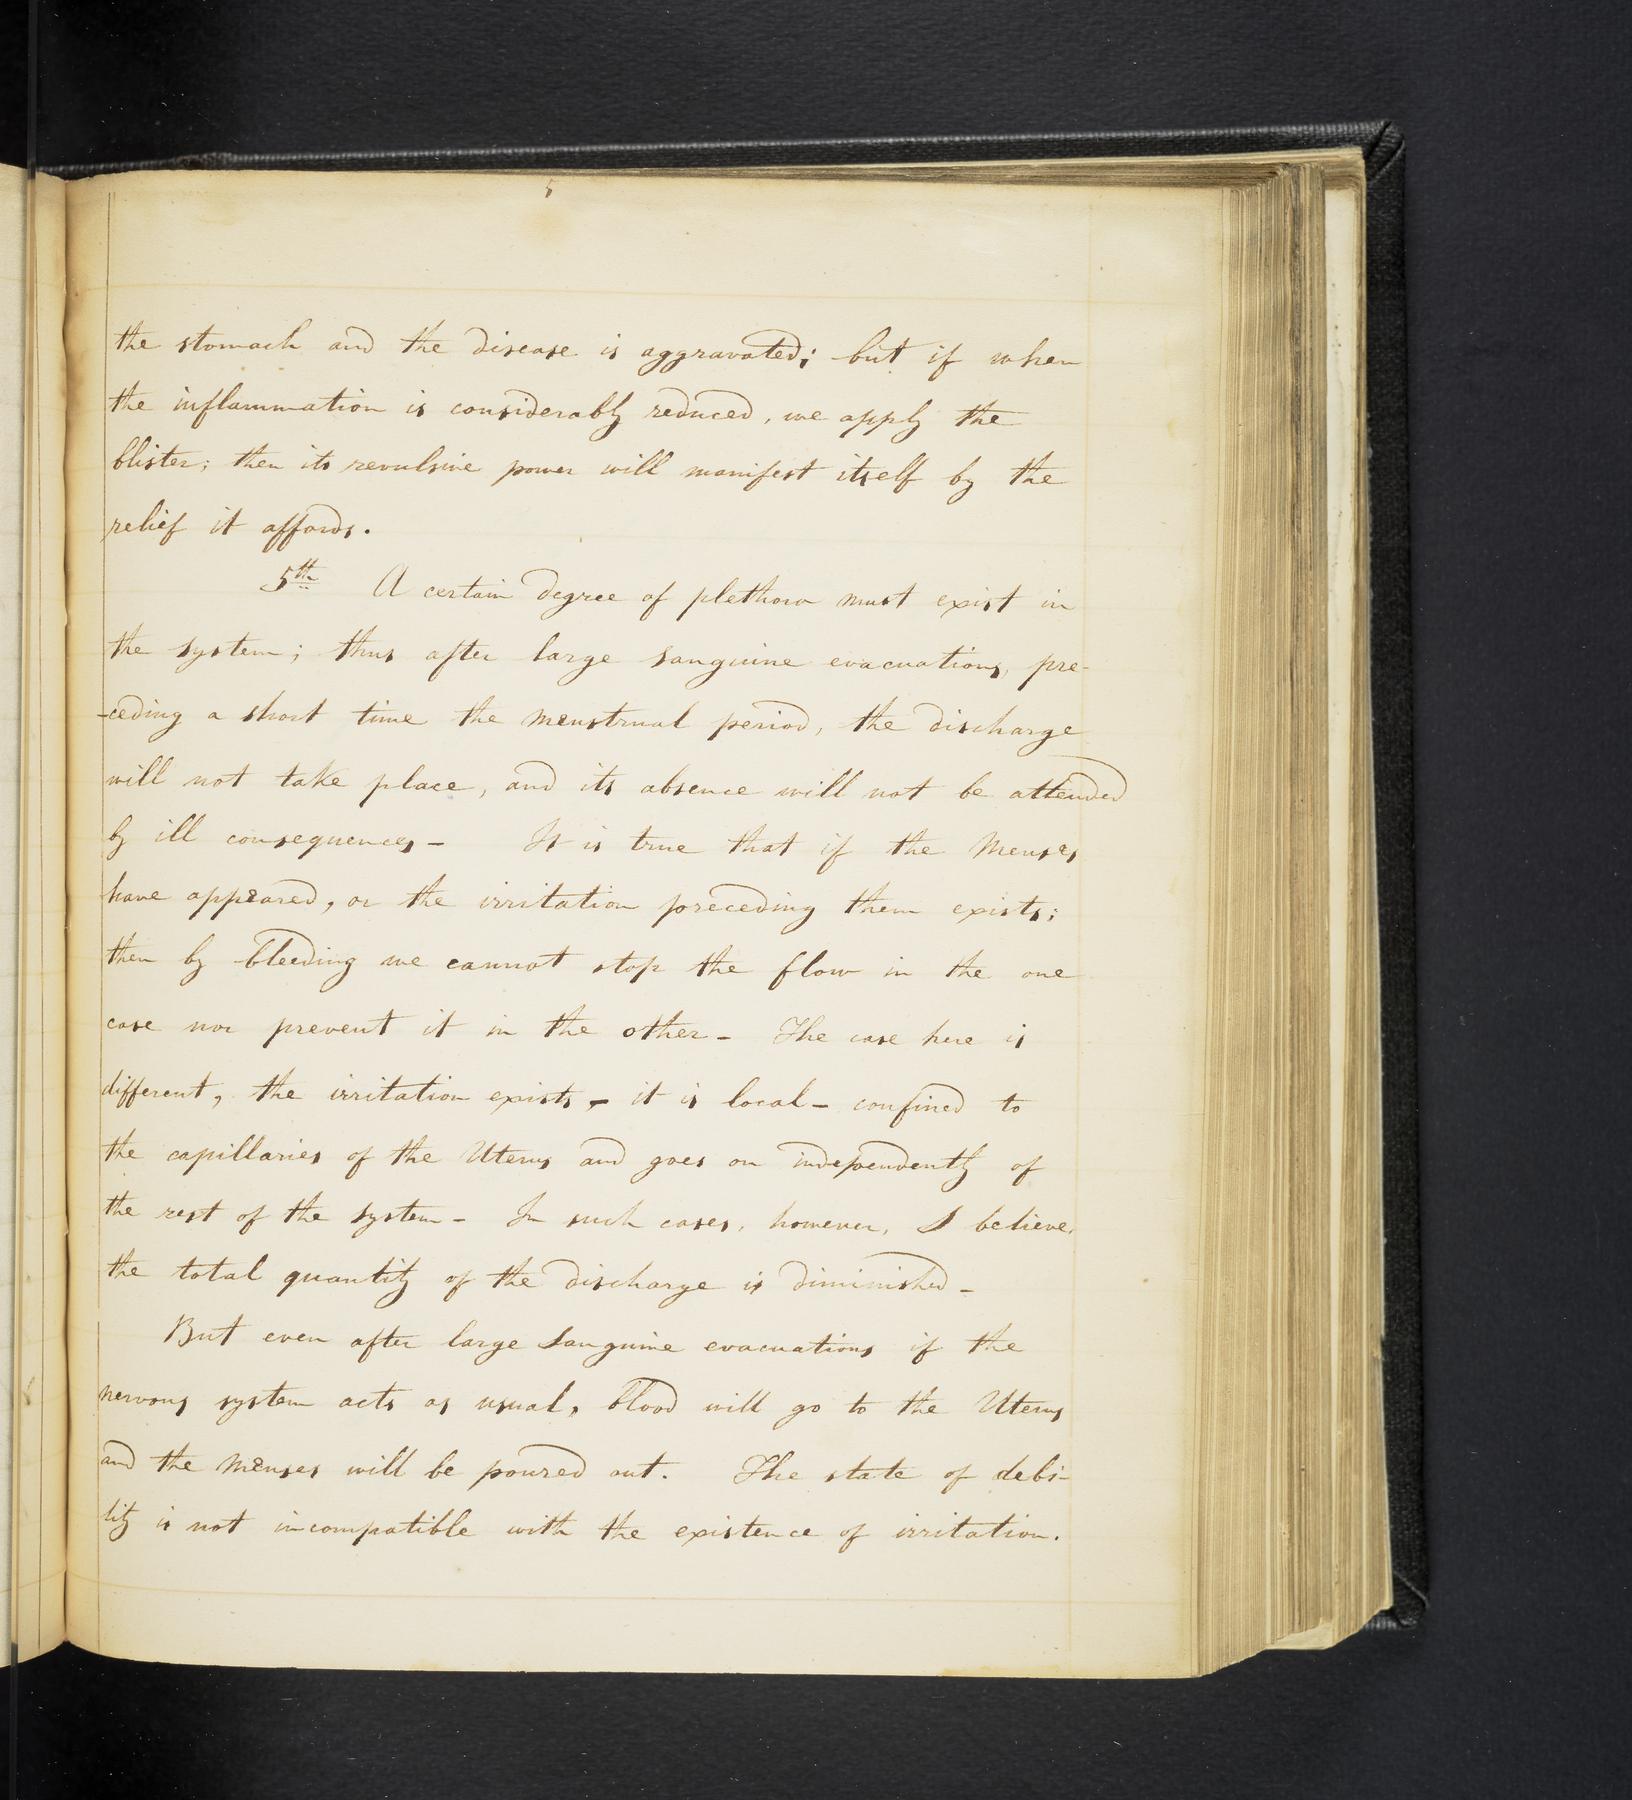 5
the stomach and the disease is aggravated; but if when
the inflammation is considerably reduced, we apply the
blister; then its revulsive power will manifest itself by the
relief it affords.
5th A certain degree of plethora must exist in
the system; thus after large sanguine evacuations, pre-
-ceding a short time the menstrual period, the discharge
will not take place, and its absence will not be attended
by ill consequences - It is true that if the Menses
have appeared, or the irritation preceding them exists;
then by bleeding we cannot stop the flow in the one
case nor prevent it in the other - The case here is
different, the irritation exists, - it is local - confined to
the capillaries of the Uterus and goes on independently of
the rest of the system - In such cases, however, I believe,
the total quantity of the discharge is diminished -
But even after large sanguine evacuations if the
nervous system acts as usual, blood will go to the Uterus
and the menses will be poured out. The state of debi-
lity is not incompatible with the existence of irritation.